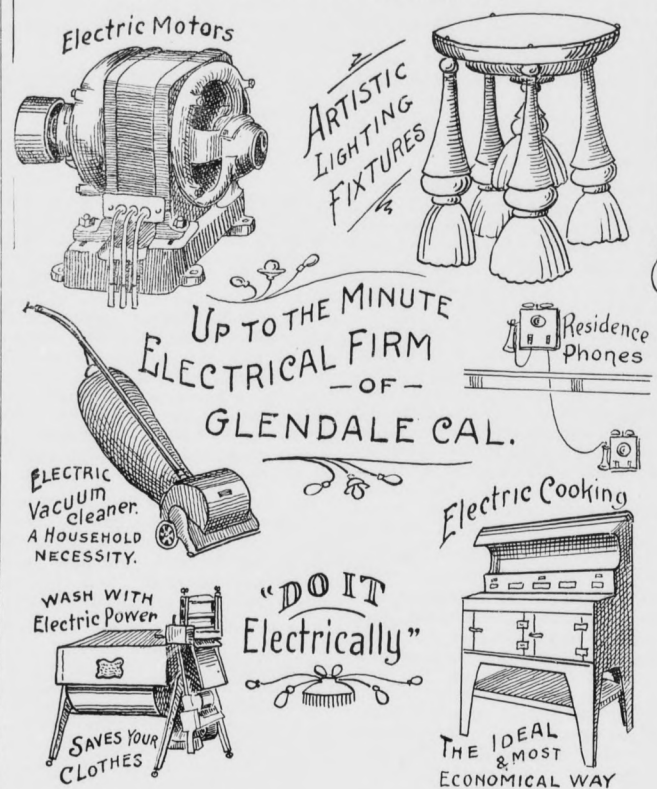 Electric Motors
ARTISTIC
LIGHTING
FIXTURES
UP TO THE MINUTE
ELECTRICAL FIRM
— OF —
GLENDALE CAL.
Residence
Phones
ELECTRIC
Vacuum
Cleaner.
A HOUSEHOLD
NECESSITY.
Electric Cooking
WASH WITH
Electric Power
SAVES YOUR
CLOTHES
"DO IT
Electrically"
THE IDEAL
& MOST
ECONOMICAL WAY